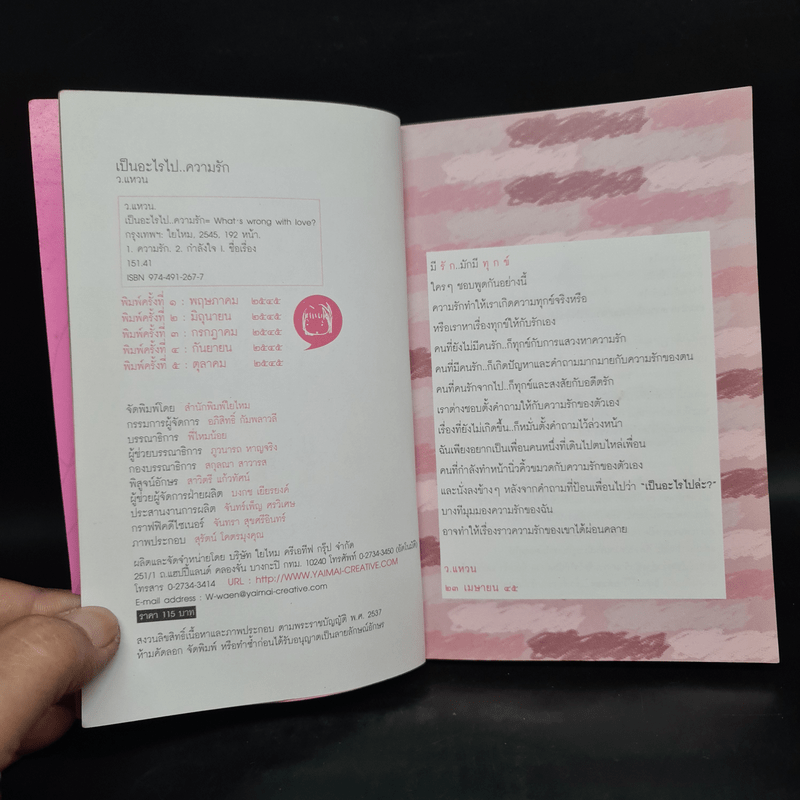 เป็นอะไรไป..ความรัก
ว.แหวน
ว.แหวน.
เป็นอะไรไป..ความรัก= What's wrong with love?
กรุงเทพฯ: ใยไหม. 2545. 192 หน้า.
1. ความรัก. 2. กำลังใจ I. ชื่อเรื่อง
151.41
ISBN 974-491-267-7
พิมพ์ครั้งที่ ๑ : พฤษภาคม ๒๕๔๕
พิมพ์ครั้งที่ ๒ : มิถุนายน ๒๕๔๕
พิมพ์ครั้งที่ ๓ : กรกฎาคม ๒๕๔๕
พิมพ์ครั้งที่ ๔ : กันยายน ๒๕๔๕
พิมพ์ครั้งที่ ๕ : ตุลาคม ๒๕๔๕
จัดพิมพ์โดย สำนักพิมพ์ใยไหม
กรรมการผู้จัดการ อภิสิทธิ์ กัมพลาวลี
บรรณาธิการ พี่ไหมน้อย
ผู้ช่วยบรรณาธิการ ภูวนารถ หาญจริง
กองบรรณาธิการ สกุลฌา สาวารส
พิสูจน์อักษร สาวิตรี แก้วทัศน์
ผู้ช่วยผู้จัดการฝ่ายผลิต บงกช เธียรยงค์
ประสานงานการผลิต จันทร์เพ็ญ ศรวิเศษ
กราฟฟิคดีไซเนอร์ จันทรา สุขศรีอินทร์
ภาพประกอบ สุรัตน์ โคตรมุงคุณ
ผลิตและจัดจำหน่ายโดย บริษัท ใยไหม ครีเอทีฟ กรุ๊ป จำกัด
251/1 ถ.แฮปปี้แลนด์ คลองจั่น บางกะปิ กทม. 10240 โทรศัพท์ 0-2734-3450 (อัตโนมัติ)
โทรสาร 0-2734-3414 URL : http://WWW.YAIMAI-CREATIVE.COM
E-mail address : W-waen@yaimai-creative.com
ราคา 115 บาท
สงวนลิขสิทธิ์เนื้อหาและภาพประกอบ ตามพระราชบัญญัติ พ.ศ. 2537
ห้ามคัดลอก จัดพิมพ์ หรือทำซ้ำก่อนได้รับอนุญาตเป็นลายลักษณ์อักษร
มี รั ก..มักมี ทุ ก ข์
ใครๆ ชอบพูดกันอย่างนี้
ความรักทำให้เราเกิดความทุกข์จริงหรือ
หรือเราหาเรื่องทุกข์ให้กับรักเอง
คนที่ยังไม่มีคนรัก..ก็ทุกข์กับการแสวงหาความรัก
คนที่มีคนรัก..ก็เกิดปัญหาและคำถามมากมายกับความรักของตน
คนที่คนรักจากไป..ก็ทุกข์และสงสัยกับอดีตรัก
เราต่างชอบตั้งคำถามให้กับความรักของตัวเอง
เรื่องที่ยังไม่เกิดขึ้น..ก็หมั่นตั้งคำถามไว้ล่วงหน้า
ฉันเพียงอยากเป็นเพื่อนคนหนึ่งที่เดินไปตบไหล่เพื่อน
คนที่กำลังทำหน้านิ่วคิ้วขมวดกับความรักของตัวเอง
และนั่งลงข้างๆ หลังจากคำถามที่ป้อนเพื่อนไปว่า "เป็นอะไรไปล่ะ?"
บางทีมุมมองความรักของฉัน
อาจทำให้เรื่องราวความรักของเขาได้ผ่อนคลาย
ว.แหวน
๒๓ เมษายน ๔๕